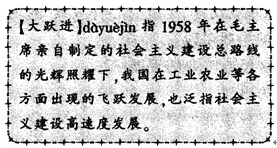 【大跃进】dàyuèjìn 指 1958 年在毛主
席亲自制定的社会主义建设总路线
的光辉照耀下,我国在工业农业等各
方面出现的飞跃发展,也泛指社会主
义建设高速度发展。